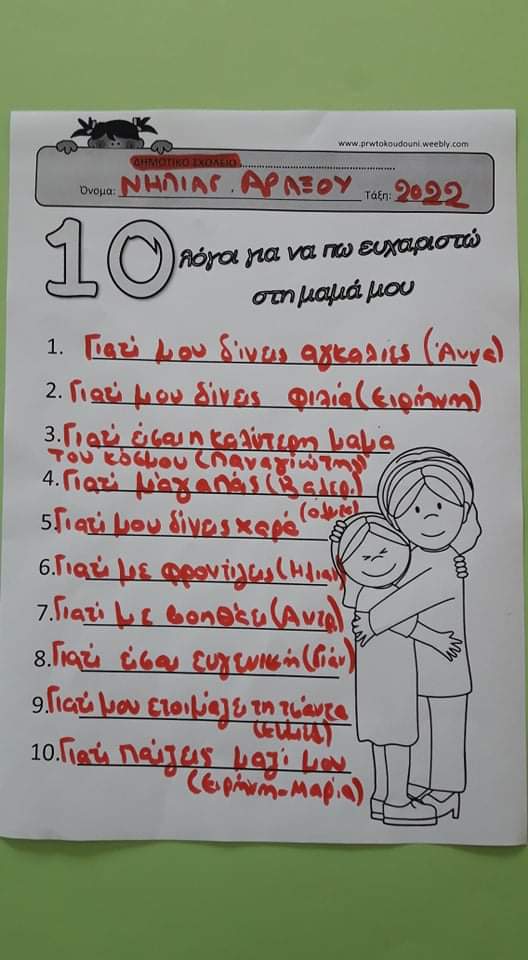 www.prwtokoudouni.weebly.com
ΔΗΜΟΤΙΚΟ ΣΧΟΛΕΙΟ
Όνομα: ΝΗΠΙΑΓ. ΑΡΑΞΟΥ Τάξη: 2022
10 λόγοι για να πω ευχαριστώ
στη μαμά μου
1. Γιατί μου δίνεις αγκαλιές (Άννα)
2. Γιατί μου δίνεις φιλιά (Ειρήνη)
3. Γιατί είσαι η καλύτερη μαμα
του κόσμου (Παναγιώτης)
4. Γιατί μ'αγαπάς (Βαλερ.)
5. Γιατί μου δίνεις χαρά
6. Γιατί με φροντίζεις (Ηλιαν)
7. Γιατί με βοηθάει (Αντρ)
8. Γιατί είσαι ευγενική (Γιάν)
9. Γιατί μου ετοιμάζει τη τσάντα
10. Γιατί παίζεις μαζί μου
(Ειρήνη-Μαρία)